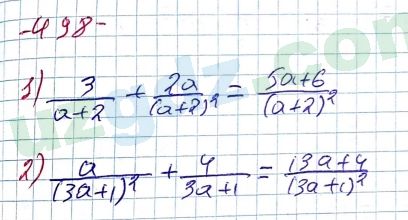 -498-
1) 3/(a+2) + 2a/(a+2)² = (5a+6)/(a+2)²
2) a/(3a+1)² + 4/(3a+1) = (13a+4)/(3a+1)²